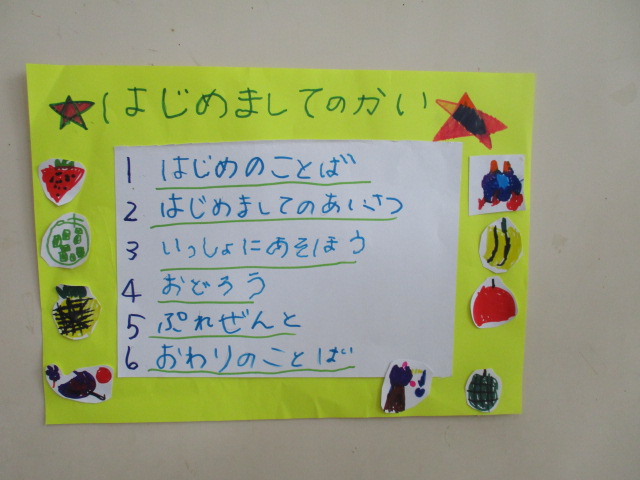 はじめましてのかい
1 はじめのことば
2 はじめましてのあいさつ
3 いっしょにあそぼう
4 おどろう
5 ぷれぜんと
6 おわりのことば